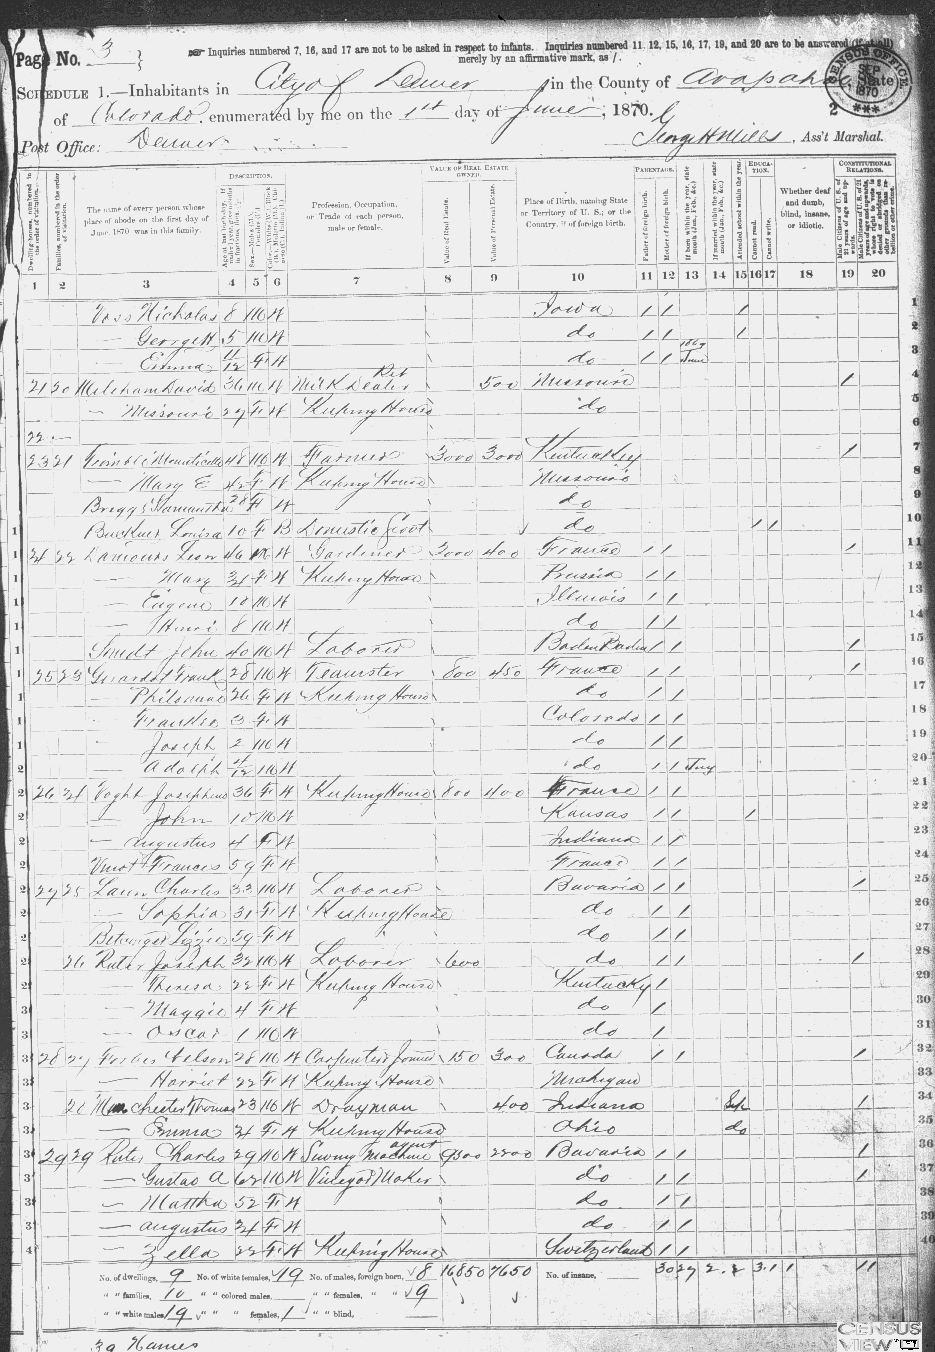 Page No. 3
Inquiries numbered 7, 16, and 17 are not to be asked in respect to infants. Inquiries numbered 11, 12, 15, 16, 17, 19, and 20 are to be answered (if at all)
merely by an affirmative mark, as /.
SCHEDULE 1.—Inhabitants in City of Denver, in the County of Arapahoe, State
of Colorado, enumerated by me on the 1st day of June, 1870.
CENSUS OFFICE SEP 1870
2
Post Office: Denver
George H Mills, Ass't Marshal.
Dwelling-houses, numbered in the order of visitation.
Families, numbered in the order of visitation.
The name of every person whose place of abode on the first day of June, 1870, was in this family.
DESCRIPTION.
Profession, Occupation, or Trade of each person, male or female.
VALUE OF REAL ESTATE OWNED.
Value of Real Estate.
Value of Personal Estate.
Place of Birth, naming State or Territory of U. S.; or the Country, if of foreign birth.
PARENTAGE.
Father of foreign birth.
Mother of foreign birth.
If born within the year, state month (Jan., Feb., &c.)
If married within the year, state month (Jan., Feb., &c.)
Attended school within the year.
EDUCATION.
Cannot read.
Cannot write.
Whether deaf and dumb, blind, insane, or idiotic.
CONSTITUTIONAL RELATIONS.
1 2 3 4 5 6 7 8 9 10 11 12 13 14 15 16 17 18 19 20
Voss Nicholas 8 M W Iowa / / / 1
— George H 5 M W do / / / 2
— Emma 11/12 F W do / / 1869 June 3
21 20 David 36 M W Milk Dealer Ret 500 Missouri / 4
— Missouri 29 F W Keeping House do 5
22 —
23 21 48 M W Farmer 3000 3000 Kentucky / 7
— Mary E 42 F W Keeping House Missouri 8
Briggs Samantha 28 F W do 9
Buckner Louisa 10 F B Domestic Servt do / / 10
24 22 Lamours Leon 46 M W Gardener 3000 400 France / / / 11
— Mary 34 F W Keeping House Prussia / / 12
— Eugene 10 M W Illinois / / 13
— Henri 8 M W do / / 14
Smidt John 40 M W Laborer Baden Baden / / / 15
25 23 Girardot Frank 28 M W Teamster 800 450 France / / / 16
— 26 F W Keeping House do / / 17
— 3 F W Colorado / / 18
— Joseph 2 M W do / / 19
— Adolph 4/12 M W do / / 20
26 24 Voght Josephine 36 F W Keeping House 800 400 France / / 21
— John 10 M W Kansas / / / 22
— Augustus 4 F W Indiana / / 23
Frances 59 F W France / / 24
27 25 Charles 33 M W Laborer Bavaria / / / 25
— Sophia 31 F W Keeping House do / / 26
Lizzie 59 F W do / / 27
26 Ruter Joseph 32 M W Laborer 600 do / / / 28
— Theresa 22 F W Keeping House Kentucky / 29
— Maggie 4 F W do / 30
— Oscar 1 M W do / 31
28 27 Forbes Nelson 28 M W Carpenter Joiner 150 300 Canada / / / 32
— Harriet 22 F W Keeping House Michigan 33
28 Manchester Thomas 23 M W Drayman 400 Indiana Sep / 34
— Emma 24 F W Keeping House Ohio do 35
29 29 Ruter Charles 29 M W Sewing Machine agent 9500 2200 Bavaria / / / 36
— Gustav A 62 M W Vinegar Maker do / / / 37
— Martha 52 F W do / / 38
— Augustus 24 F W do / / 39
— Zella 22 F W Keeping House Switzerland / / 40
No. of dwellings, 9 No. of white females, 19 No. of males, foreign born, 8 16850 7650 No. of insane, 30 29 2 2 3 1 1 11
" " families, 10 " " colored males, " " females, " " 9
" " white males, 19 " " " females, 1 " " blind,
39 Names
CENSUS
VIEW